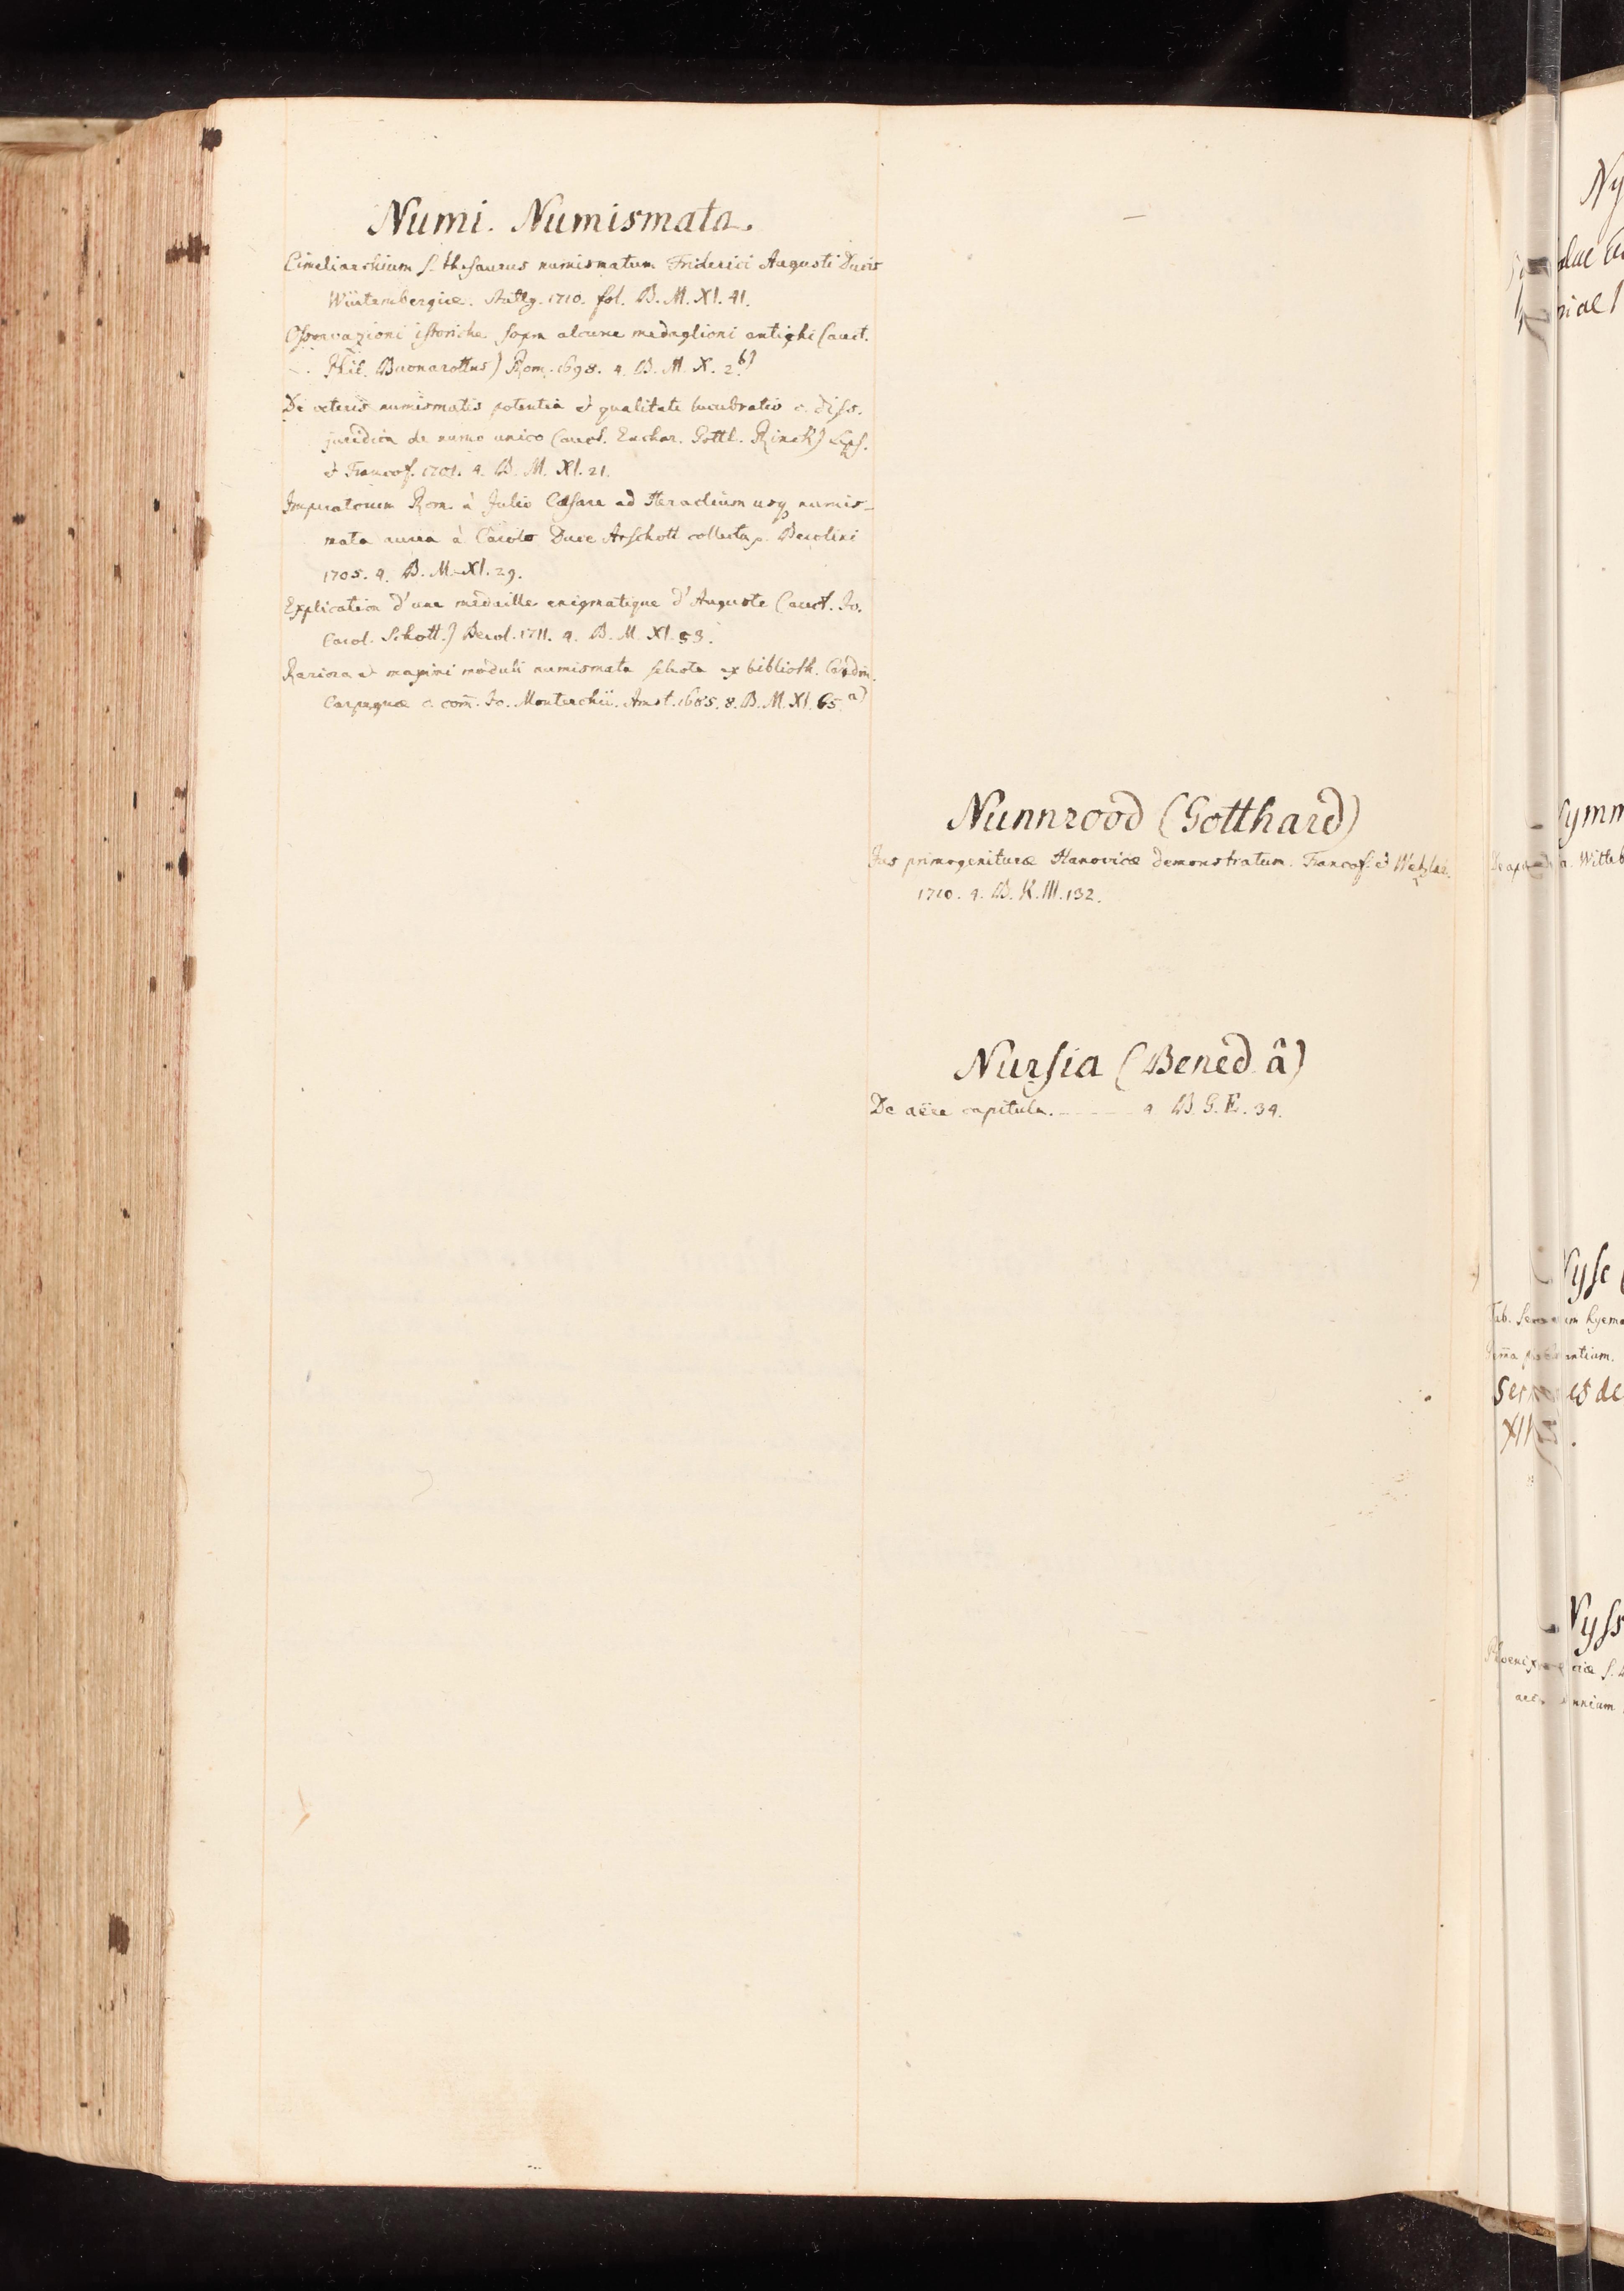 Numi. Numismata.
Cimeliarchium s. thesaurus numismatum Friderici Augusti Ducis
Würtembergiae. Stuttg. 1710. fol. B. M. XI. 41.
Osservazioni istoriche sopra alcune medaglioni antighi (auct.
Phil. Buonarottus) Rom. 1698. 4. B. M. X. 2. b)
De veteris numismatis potentia et qualitate lucubratio c. diss.
juridica de numo unico (auct. Euchar. Gottl. Rinck) Lips.
et Francof. 1701. 4. B. M. XI. 21.
Imperatorum Rom. à Julio Cæsare ad Heraclium usq numis-
mata aurea à Carolo Duce Arschott collecta p. Berolini
1705. 4. B. M. XI. 29.
Explication d'une medaille enigmatique d'Auguste (auct. Jo.
Carol. Schott.) Berol. 1711. 4. B. M. XI. 53.
Rariora et maximi moduli numismata selecta ex biblioth. Cardin.
Carpegnæ c. com̄. Jo. Monterchii. Amst. 1685. 8. B. M. XI. 65. a)
Nunnrood (Gotthard)
Jus primogenituræ Hanovicæ demonstratum. Francof. et Wetzlar.
1710. 4. B. K. III. 132.
Nursia (Bened. â)
De aëre capitula. ------ 4. B. G. E. 34.